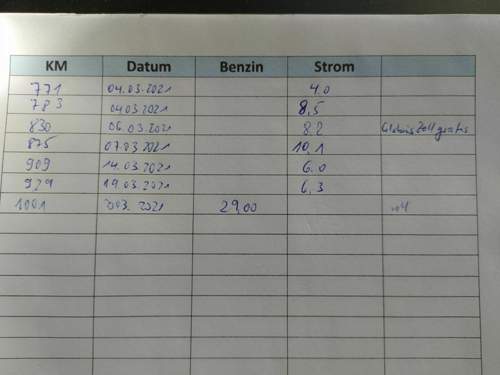 KM Datum Benzin Strom
771 04.03.2021 4.0
783 04.03.2021 8,5
830 06.03.2021 8.2
875 07.03.2021 10,1
909 14.03.2021 6.0
929 19.03.2021 6,3
1001 03. 2021 29,00